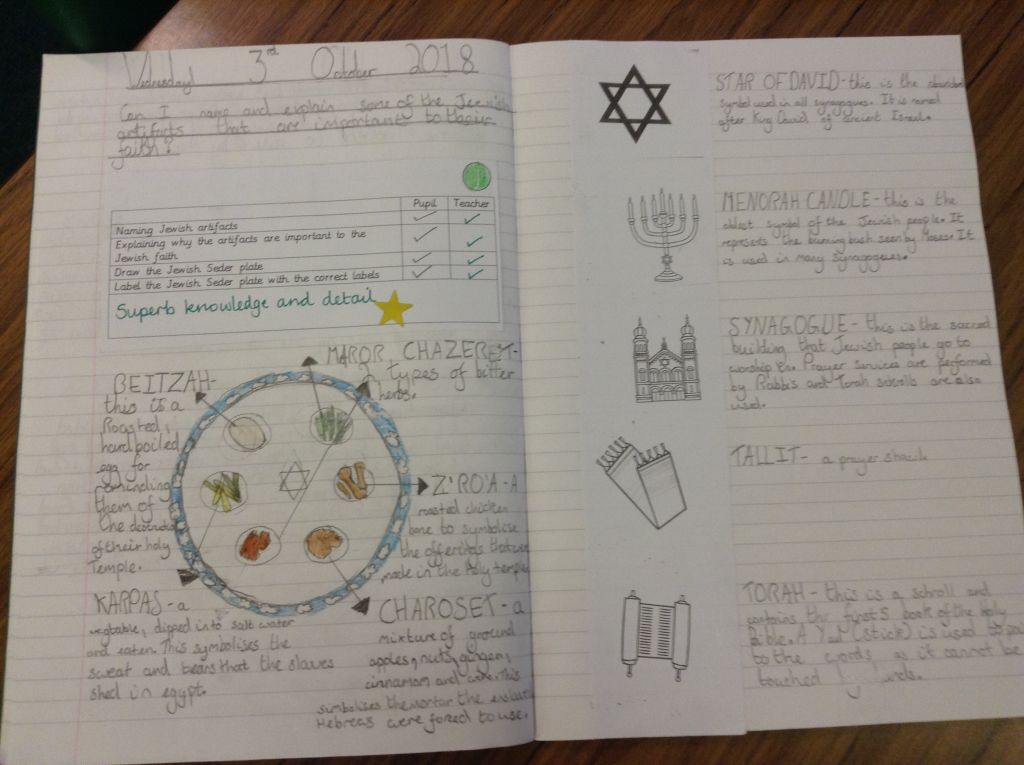 Wednesday 3rd October 2018
Can I name and explain some of the Jewish
artifacts that are important to their
faith?
Pupil Teacher
Naming Jewish artifacts
Explaining why the artifacts are important to the
Jewish faith
Draw the Jewish Seder plate
Label the Jewish Seder plate with the correct labels
Superb knowledge and detail
MAROR, CHAZERET-
2 types of bitter
herbs.
BEITZAH-
this is a
Roasted,
hard boiled
egg for
reminding
them of
the
of their holy
Temple.
Z'RO'A - A
roasted chicken
bone to symbolise
the offerings that
made in the Holy temple
KARPAS - a
vegtable, dipped into salt water
and eaten. This symbolises the
sweat and tears that the slaves
shed in egypt.
CHAROSET - a
mixture of ground
apples, nuts, ginger,
cinnamom and This
simbolises the mortar the
Hebrews were forced to use.
STAR OF DAVID - this is the
symbol used in all synagogues. It is named
after King David of ancient Israel.
MENORAH CANDLE - this is the
oldest symbol of the Jewish people. It
represents the burning bush seen by Moses. It
is used in many Synagogues.
SYNAGOGUE - this is the sacred
building that Jewish people go to
worship in. Prayer services are performed
by Rabbis and Torah scrolls are also
used.
TALLIT - a prayer shawl
TORAH - this is a scroll and
contains the first 5 book of the holy
Bible. A Yad (stick) is used to
to the words as it cannot be
touched